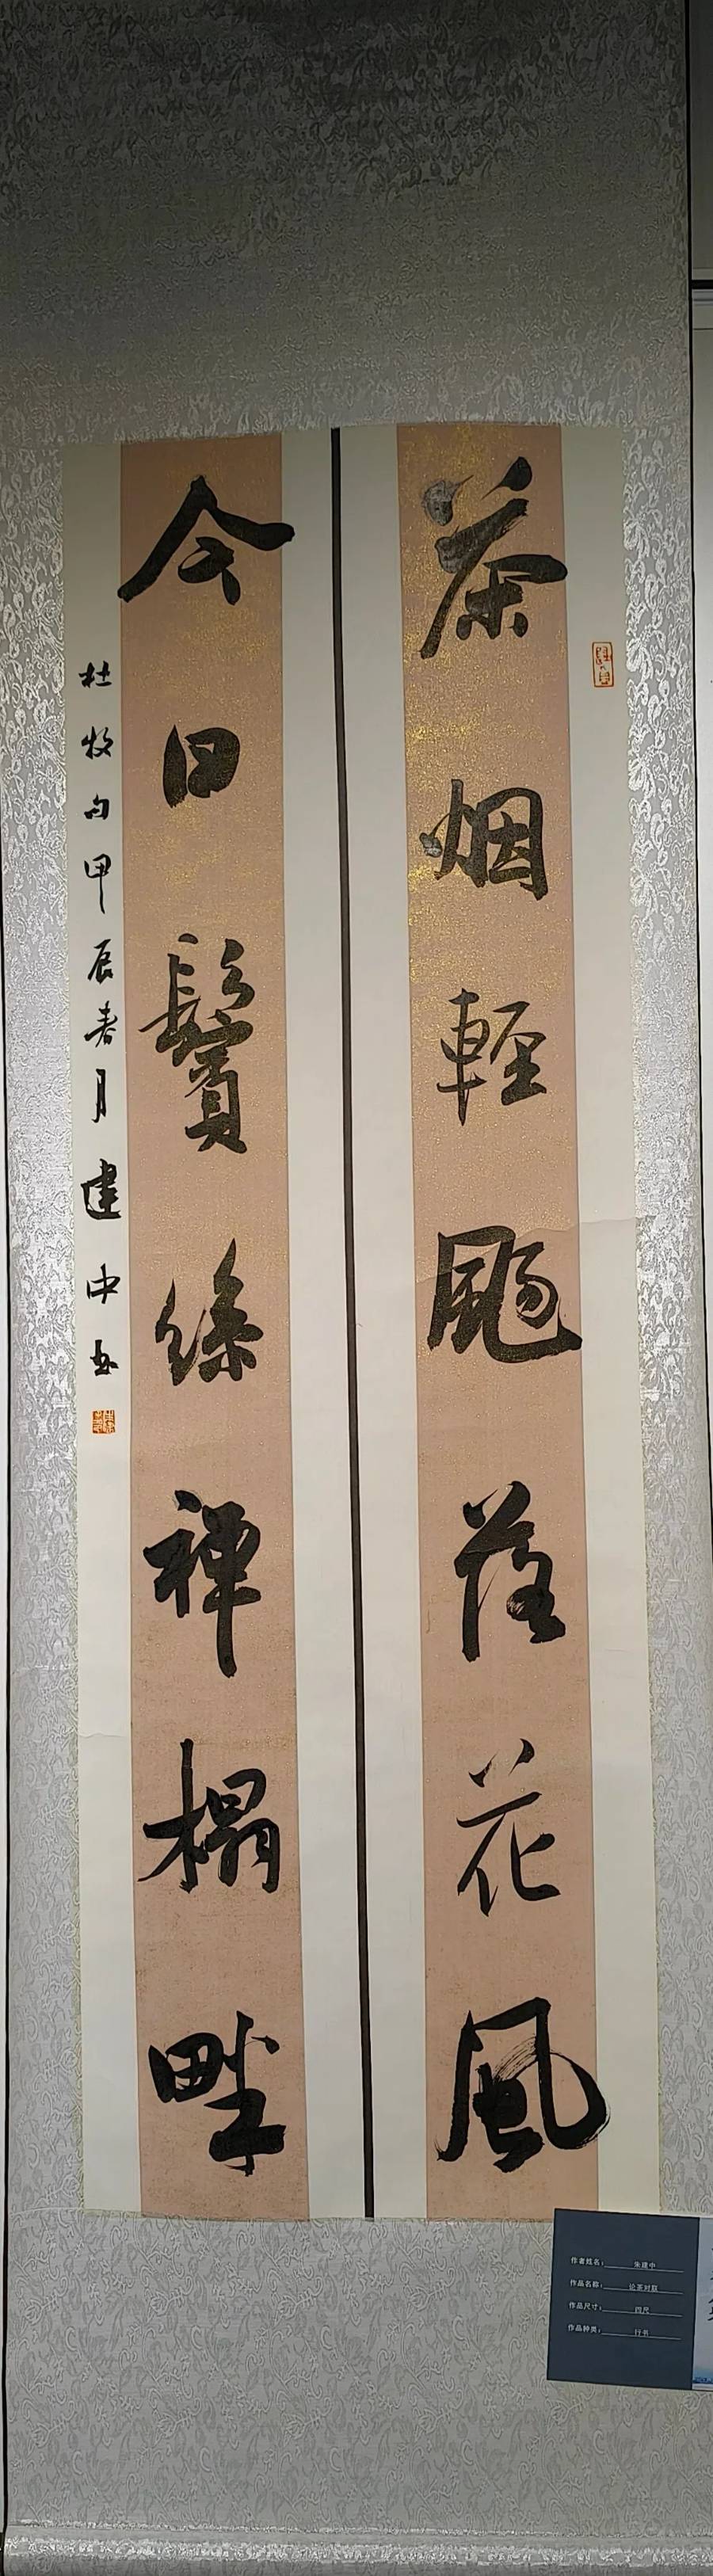 茶烟輕颺落花風
今日鬢絲禅榻畔
杜牧句甲辰春月建中书
作者姓名：朱建中
作品名称：论茶对联
作品尺寸：四尺
作品种类：行书